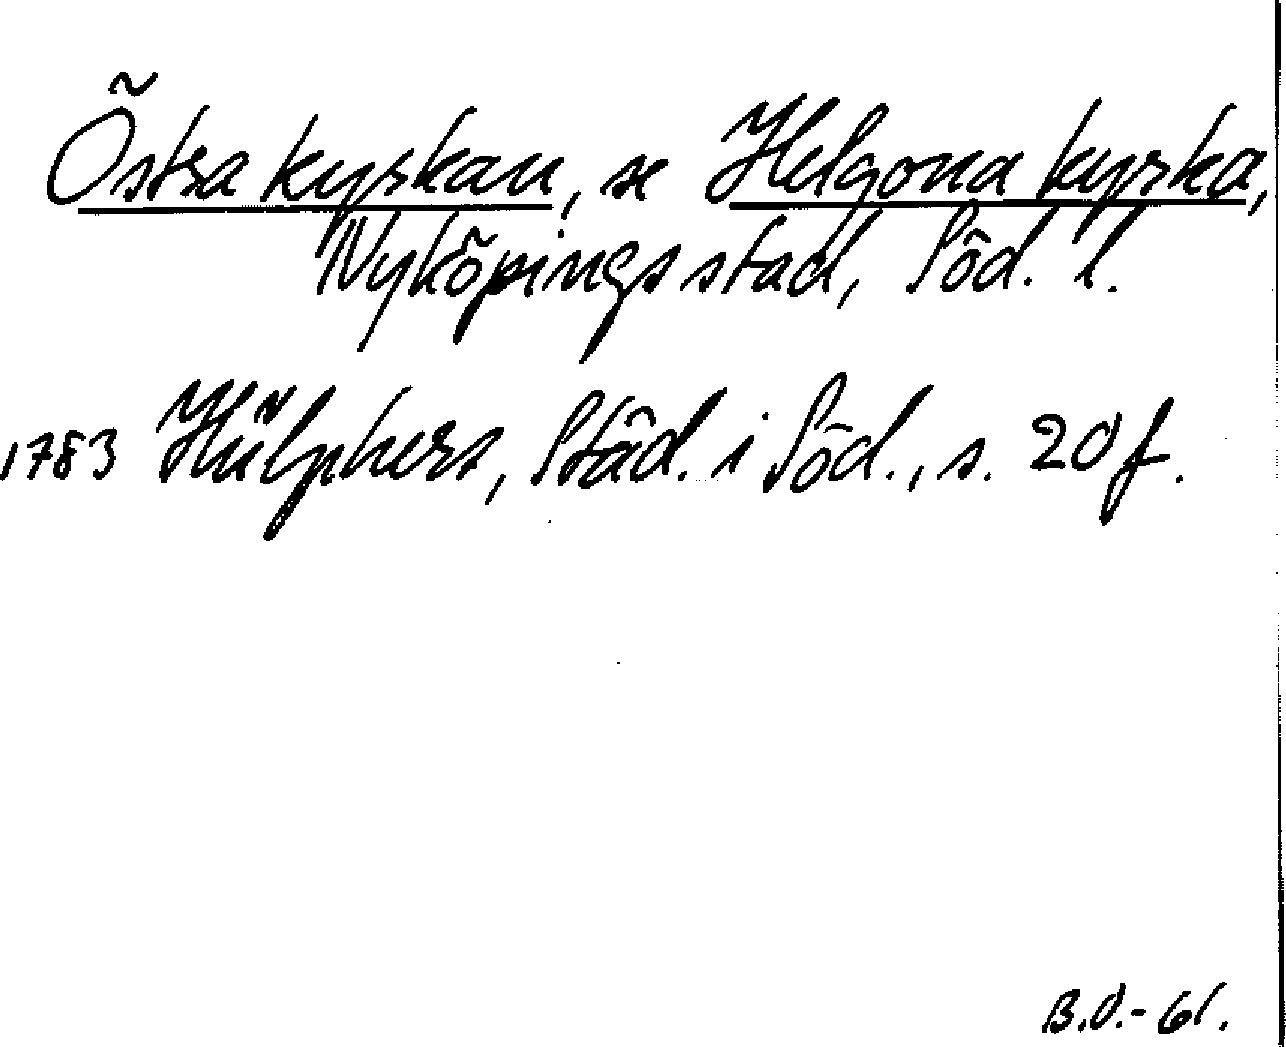 Östra kyrkan, se Helgona kyrka,
Nyköpings stad, Söd. l.
1783 Hülphers, Städ. i Söd., s. 20 f.
B.O.-61.